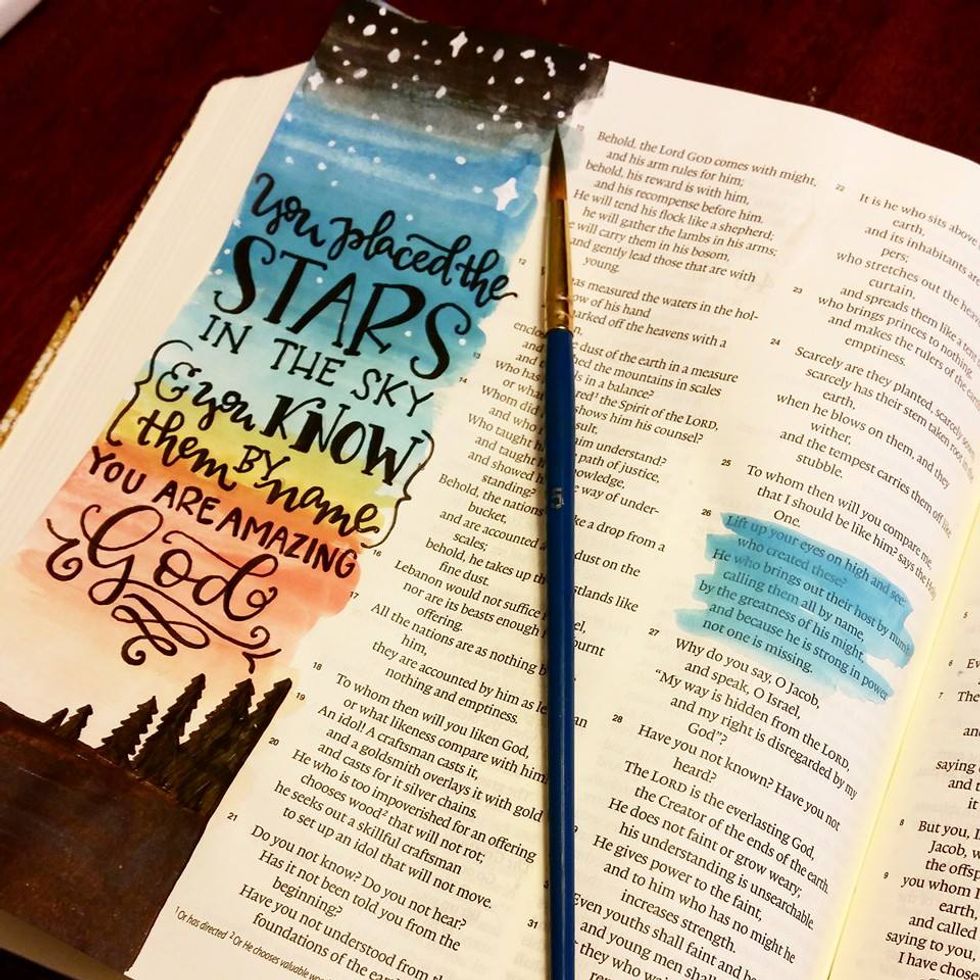 You placed the
STARS
IN THE SKY
& you KNOW
them BY name
YOU ARE AMAZING
God
10 Behold, the Lord GOD comes with might,
and his arm rules for him;
behold, his reward is with him,
and his recompense before him.
He will tend his flock like a shepherd,
he will gather the lambs in his arms;
will carry them in his bosom,
and gently lead those that are with
young.
12
as measured the waters in the hol-
ow of his hand
arked off the heavens with a
n,
enclo dust of the earth in a measure
and the mountains in scales
in a balance?
13 who has red² the Spirit of the LORD,
or what shows him his counsel?
14 Whom did sult,
and who im understand?
Who taught path of justice,
and taught knowledge,
and showed way of under-
standing?
Behold, the nations ke a drop from a
bucket,
and are accounted dust on the
scales;
behold, he takes up th stlands like
fine dust.
16 Lebanon would not suffice el,
nor are its beasts enough burnt
offering.
17 All the nations are as nothing b
him,
they are accounted by him as le an
nothing and emptiness.
18 To whom then will you liken God,
or what likeness compare with him
19 An idol! A craftsman casts it,
and a goldsmith overlays it with gold
and casts for it silver chains.
20 He who is too impoverished for an offering
chooses wood² that will not rot;
he seeks out a skillful craftsman
to set up an idol that will not move.
21 Do you not know? Do you not hear?
Has it not been told you from the
beginning?
Have you not understood from th
foundations of the earth
¹ Or has directed ² Or He chooses valuable wo
22 It is he who sits above
earth,
and its inhabitants
pers;
who stretches out the heav
curtain,
and spreads them like a ten
23 who brings princes to nothing,
and makes the rulers of the
emptiness.
24 Scarcely are they planted, scarcely
scarcely has their stem taken root
earth,
when he blows on them, and they
wither,
and the tempest carries them off like
stubble.
25 To whom then will you compare me,
that I should be like him? says the Holy
One.
26 Lift up your eyes on high and see:
who created these?
He who brings out their host by numb
calling them all by name,
by the greatness of his might,
and because he is strong in power
not one is missing.
27 Why do you say, O Jacob,
and speak, O Israel,
"My way is hidden from the LORD,
and my right is disregarded by my
God"?
28 Have you not known? Have you not
heard?
The LORD is the everlasting God,
the Creator of the ends of the earth.
He does not faint or grow weary;
his understanding is unsearchable.
He gives power to the faint,
and to him who has no might he
increases strength.
Even youths shall faint and be
and young men shall
31 they who wa
ren
5
6 Ev
7 The
and
saying
and
it
8 But you, I
Jacob, w
the offsp
9 you whom I
earth,
and called
saying to you
I have chose